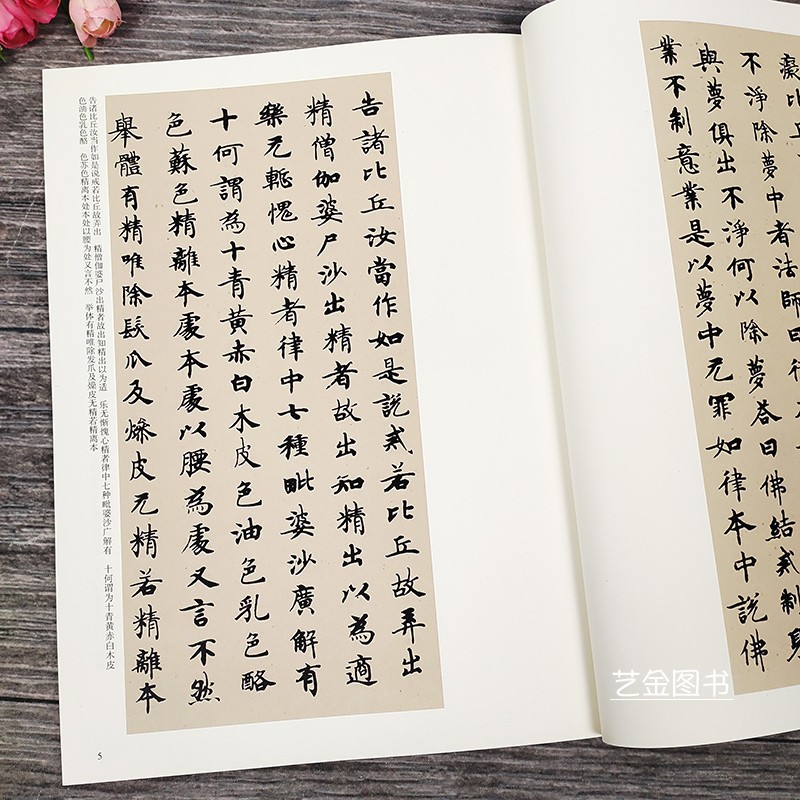 業不制意業是以夢中无罪如律本中說佛
與夢俱出不淨何以除夢荅曰佛結戒制身
不淨除夢中者法師曰
癡比丘
告諸比丘汝當作如是說戒若比丘故弄出
精僧伽婆尸沙出精者故出知精出以為適
樂无慚愧心精者律中七種毗婆沙廣解有
十何謂為十青黃赤白木皮色油色乳色酪
色蘇色精離本處本處以腰為處又言不然
舉體有精唯除髮爪及燥皮无精若精離本
告诸比丘汝当作如是说戒若比丘故弄出　精僧伽婆尸沙出精者故出知精出以为适　乐无惭愧心精者律中七种毗婆沙广解有　十何谓为十青黄赤白木皮
色油色乳色酪　色苏色精离本处本处以腰为处又言不然　举体有精唯除发爪及燥皮无精若精离本
5
艺金图书